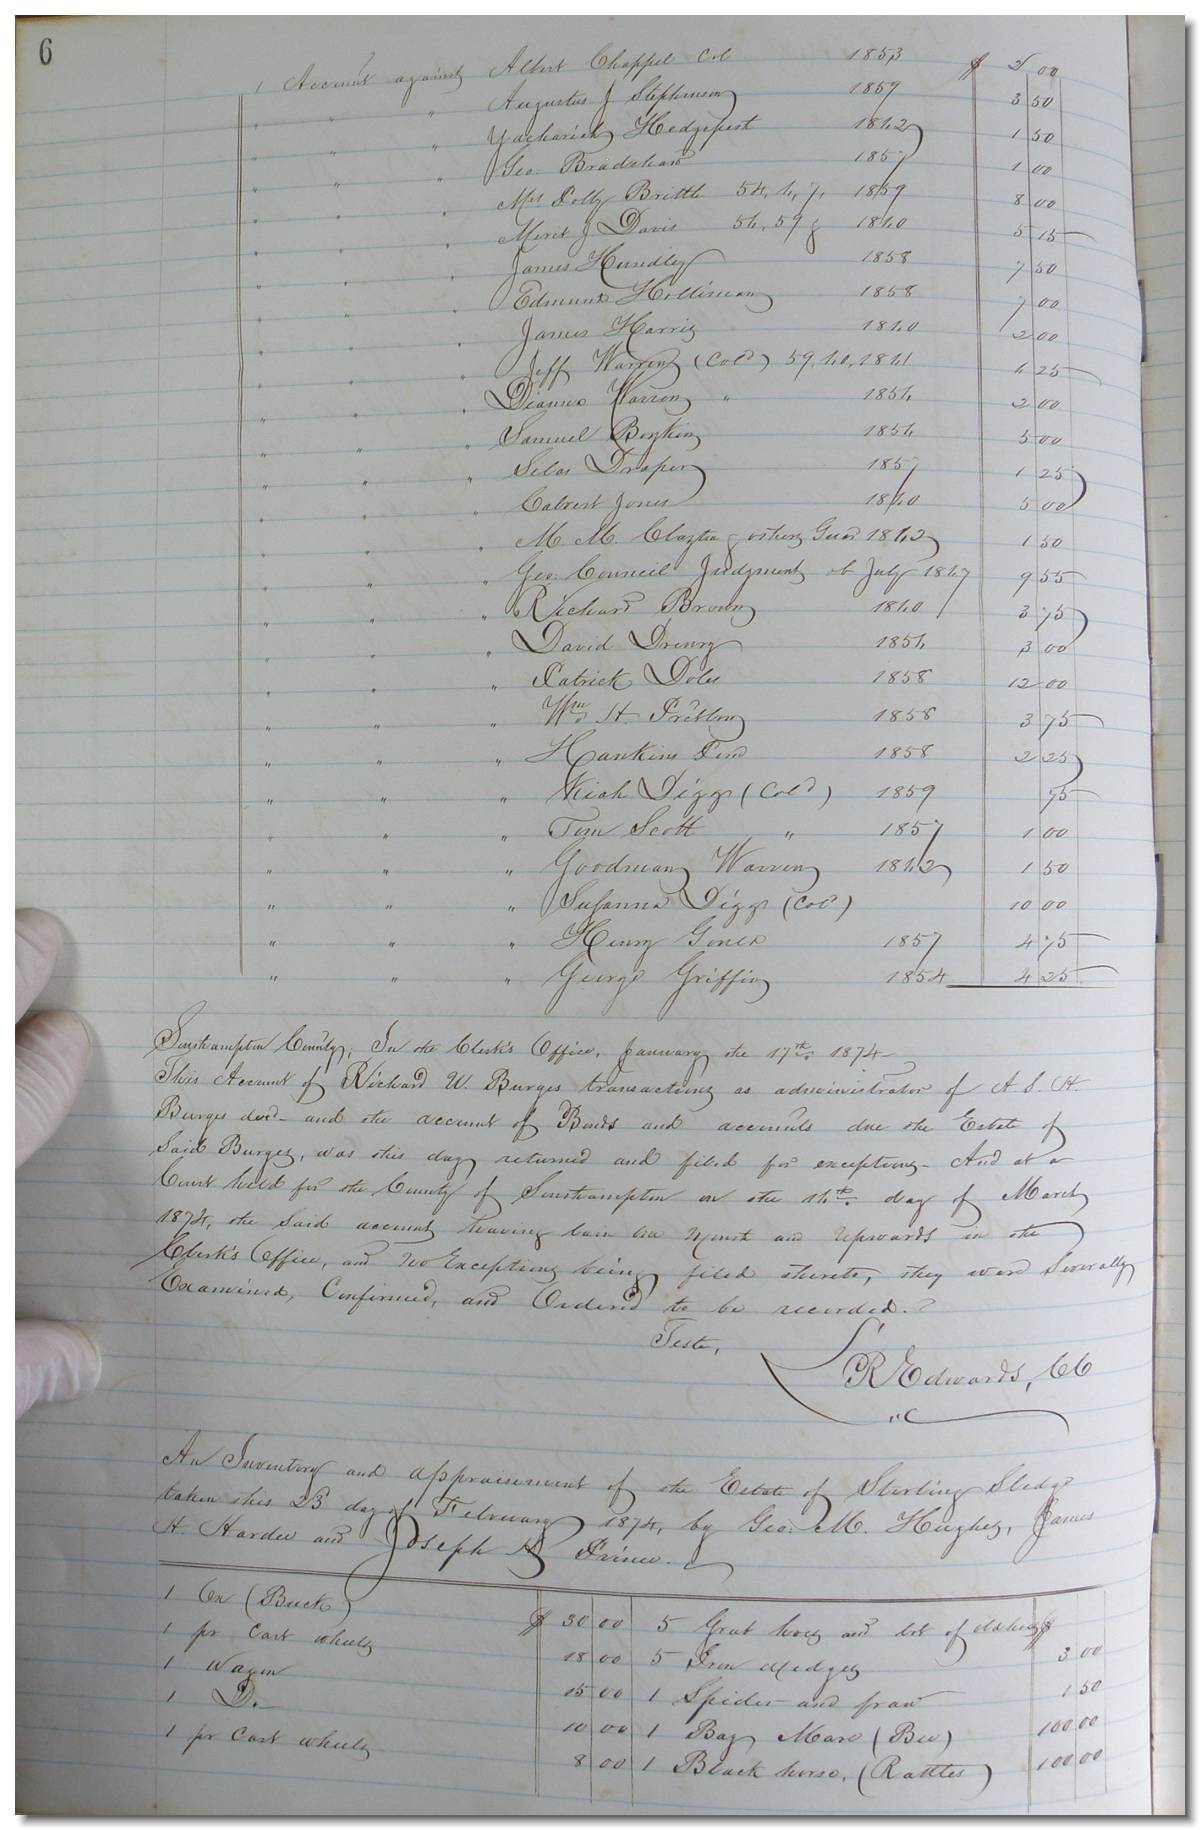 6
1 Account against Albert Chappel Col 1853 $ 2 00
" " " Augustus J Stephenson 1859 3 50
" " " Zachariah Hedgepeth 1862 1 50
" " " Geo. Bradshaw 1857 1 00
" " " Mrs Polly Brittle 54, 6, 7, 1859 8 00
" " " Merit J Davis 56, 59 & 1860 5 15
" " " James Hundley 1858 7 50
" " " Edmund Holliman 1858 7 00
" " " James Harris 1860 2 00
" " " Jeff Warren (Cold) 59, 60, 1861 6 25
" " " Dianna Warren " 1856 2 00
" " " Samuel Boykin 1856 5 00
" " " Silas Draper 1857 1 25
" " " Calvert Jones 1860 5 00
" " " M. M. Clayton & others Guar 1862 1 50
" " " Geo. Council Judgment of July 1867 9 55
" " " Richard Brown 1860 3 75
" " " David Drewry 1856 3 00
" " " Patrick Doles 1858 12 00
" " " Wm H. Presson 1858 3 75
" " " Hawkins Pend 1858 2 25
" " " Kiah Diggs (Cold) 1859 75
" " " Tom Scott " 1857 1 00
" " " Goodman Warren 1862 1 50
" " " Susanna Diggs (Cold) 10 00
" " " Henry Jones 1857 4 75
" " " George Griffin 1854 4 25
Southampton County; In the Clerk's Office, January the 17th 1874
This Account of Richard U. Burges transactions as administrator of A. S. H.
Burges decd and the account of Bonds and accounts due the Estate of
Said Burges, was this day returned and filed for exceptions- And at a
Court held for the County of Southampton on the 16th day of March
1874, the said account having lain one Month and Upwards in the
Clerk's Office, and no Exceptions being filed thereto, they were Severally
Examined, Confirmed, and Ordered to be recorded.
Teste,
L R Edwards, CC
An Inventory and appraisement of the Estate of Sterling Sledge
taken this 23 day of February 1874, by Geo. M. Hughes, James
H. Hardee and Joseph H Prince.
1 Ox (Buck) $ 30 00 5 Grub hoes and lot of old hoes $
1 pr Cart wheels 18 00 5 Iron wedges 3 00
1 Wagon 15 00 1 Spider and pan 1 50
1 Do 10 00 1 Bay Mare (Bee) 100 00
1 pr Cart wheels 8 00 1 Black horse, (Rattler) 100 00